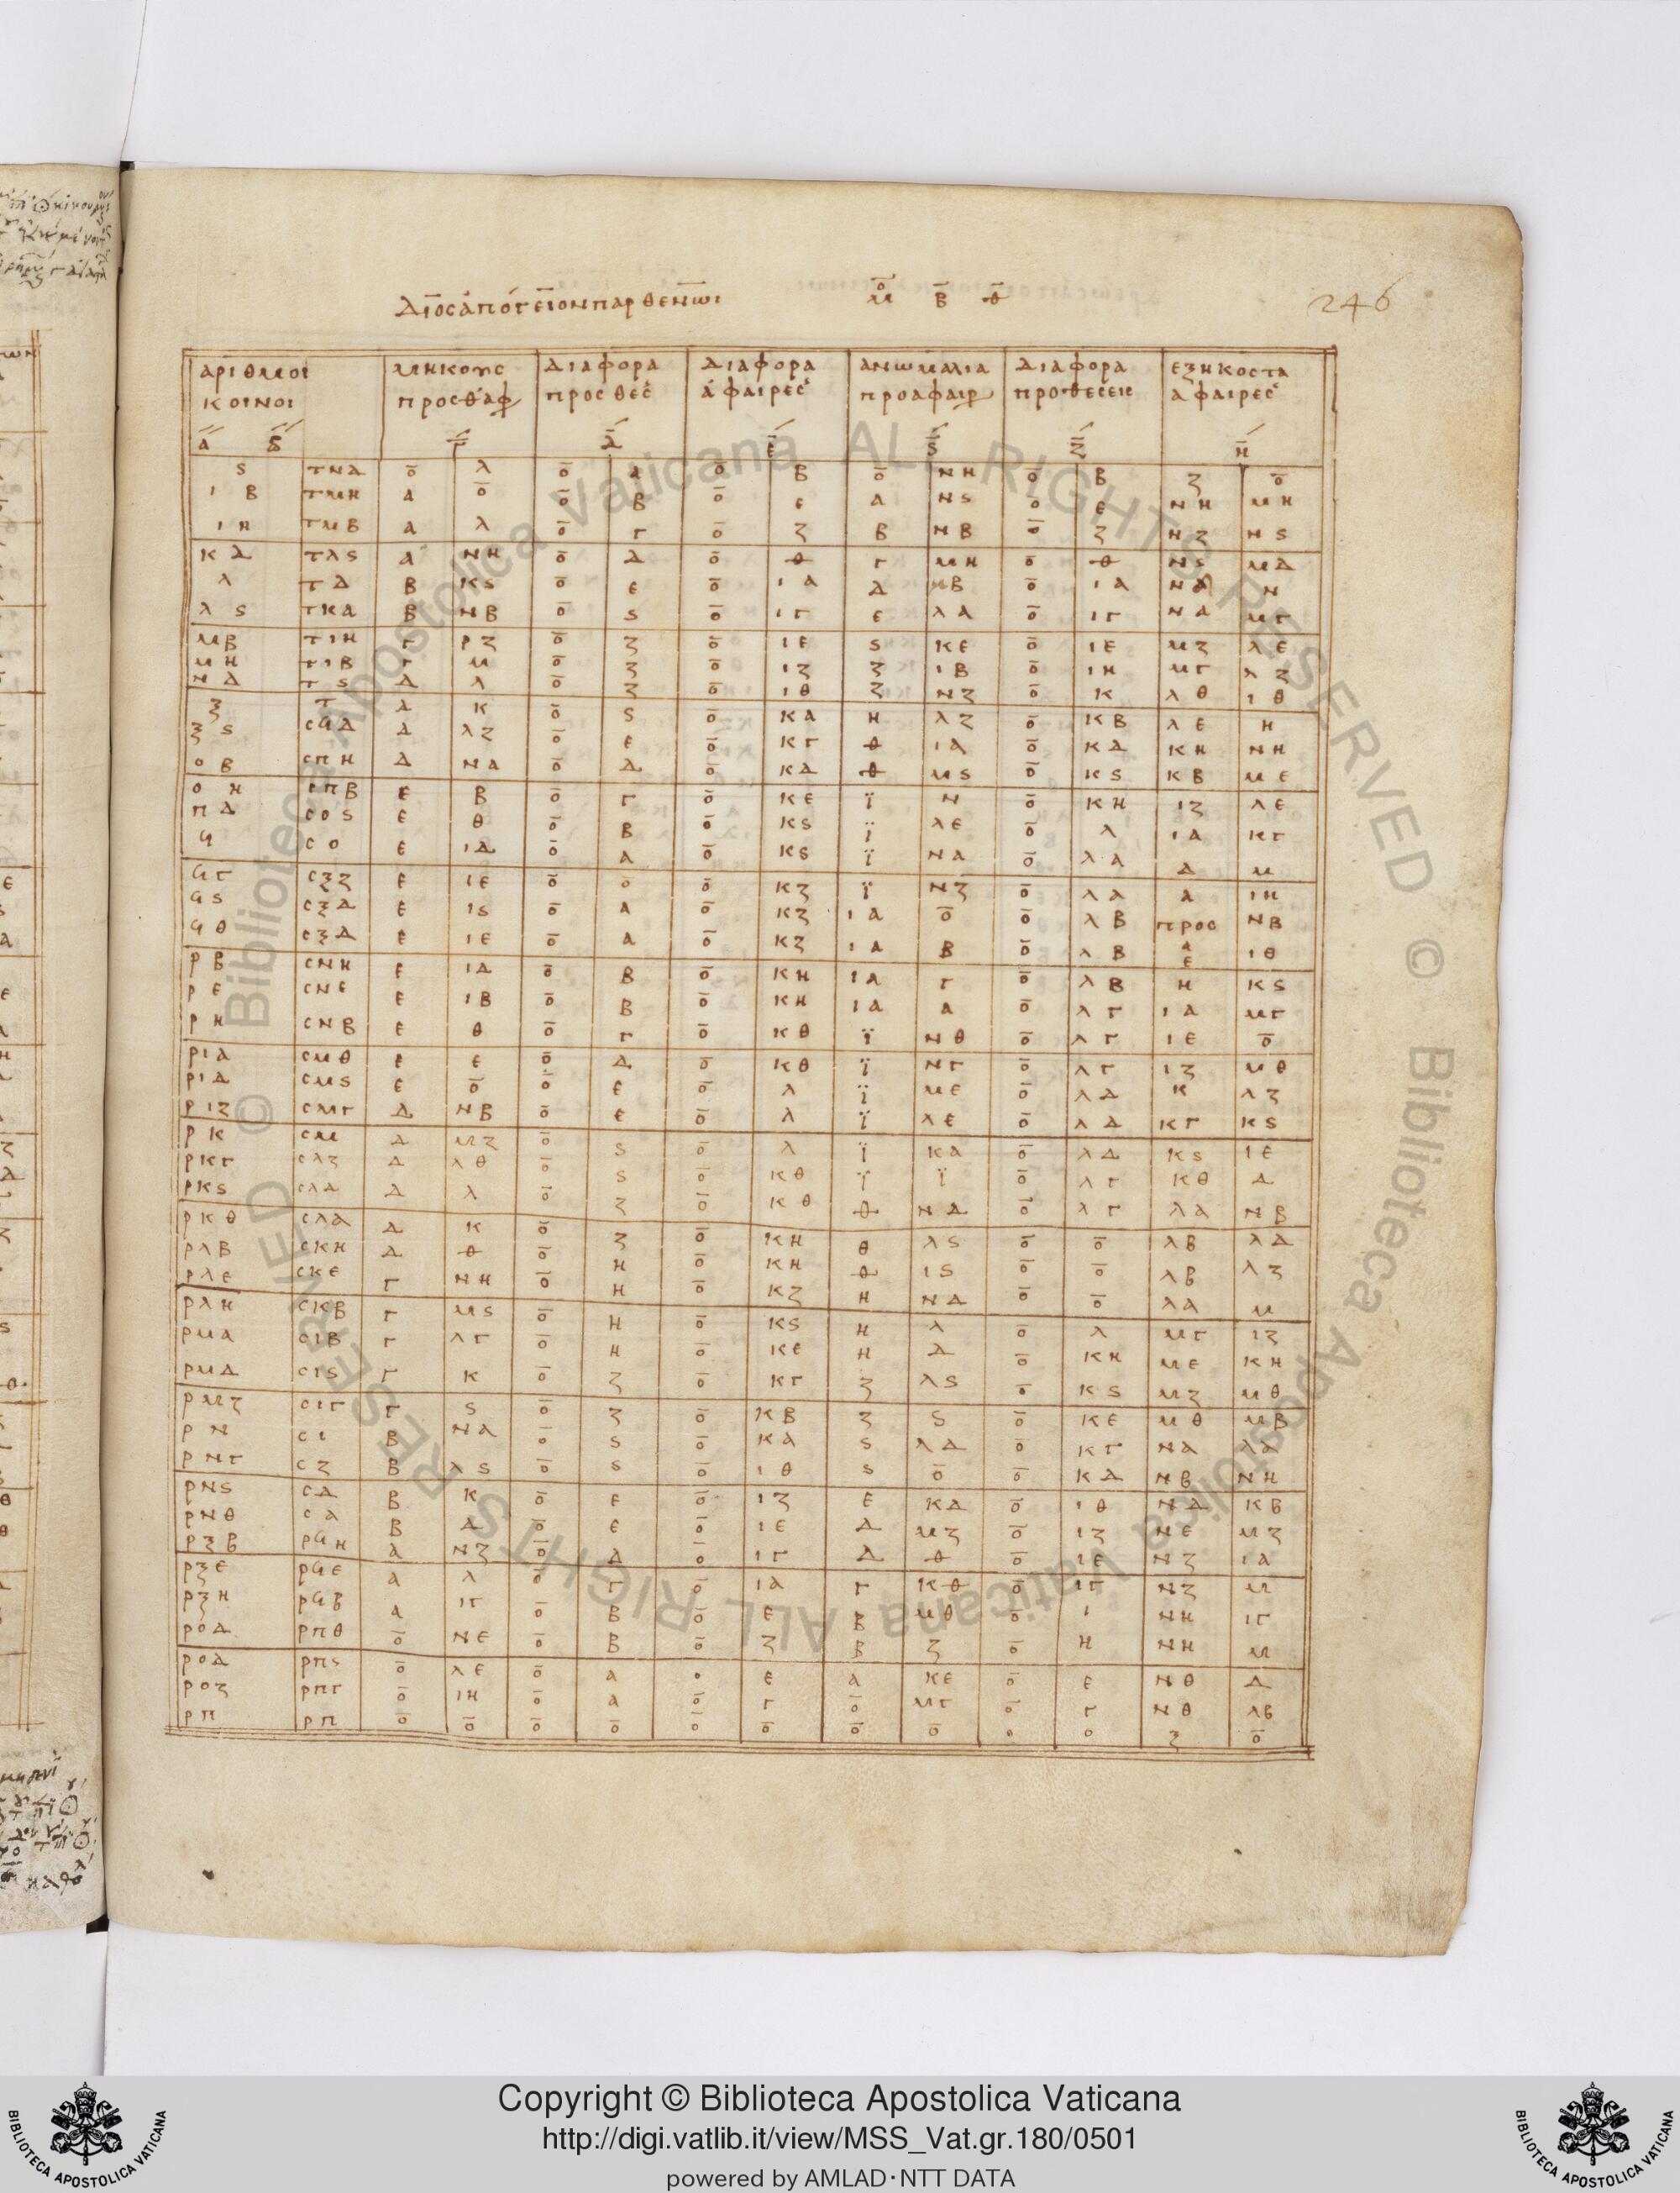 Διος απογειον παρθενωι μο β θ
246
αριθμοι μηκους διαφορα διαφορα ανωμαλια διαφορα εξηκοστα
κοινοι προσθαφ προσθεσ αφαιρεσ προαφαιρ προθεσεις αφαιρεσ
α β γ δ ε ϛ ζ η
ϛ τνα ο λ ο α ο β ο νη ο β ζ ο
ιβ τμη α ο ο β ο ε α νϛ ο ε νη μη
ιη τμβ α λ ο γ ο ζ β νβ ο ζ νζ νϛ
κδ τλϛ α νη ο δ ο θ γ μη ο θ νϛ μδ
λ τλ β κϛ ο ε ο ια δ μβ ο ια νδ ν
λϛ τκδ β νβ ο ϛ ο ιγ ε λα ο ιγ να μγ
μβ τιη γ ρζ ο ζ ο ιε ϛ κε ο ιε μζ λε
μη τιβ γ μ ο ζ ο ιζ ζ ιβ ο ιη μγ λζ
νδ τϛ δ λ ο ζ ο ιθ ζ νζ ο κ λθ ιθ
ξ τ δ κ ο ϛ ο κα η λζ ο κβ λε η
ξϛ σϟδ δ λζ ο ε ο κγ θ ια ο κδ κη νη
οβ σπη δ να ο δ ο κδ θ μϛ ο κϛ κβ με
οη σπβ ε β ο γ ο κε ι ν ο κη ιζ λε
πδ σοϛ ε θ ο β ο κϛ ι λε ο λ ια κγ
ϟ σο ε ιδ ο α ο κϛ ι να ο λα δ μ
ϟγ σξζ ε ιε ο ο ο κζ ι νζ ο λα α ιη
ϟϛ σξδ ε ιϛ ο α ο κζ ια ο ο λβ προσ α νβ
ϟθ σξα ε ιε ο α ο κζ ια β ο λβ ε ιθ
ρβ σνη ε ιδ ο β ο κη ια γ ο λβ η κϛ
ρε σνε ε ιβ ο β ο κη ια α ο λγ ια μγ
ρη σνβ ε θ ο γ ο κθ ι νθ ο λγ ιε ο
ρια σμθ ε ε ο δ ο κθ ι νγ ο λγ ιζ μθ
ριδ σμϛ ε ο ο ε ο λ ι με ο λδ κ λζ
ριζ σμγ δ νβ ο ε ο λ ι λε ο λδ κγ κϛ
ρκ σμ δ μζ ο ϛ ο λ ι κα ο λδ κϛ ιε
ρκγ σλζ δ λθ ο ϛ ο κθ ι ι ο λγ κθ δ
ρκϛ σλδ δ λ ο ζ ο κθ θ νδ ο λγ λα νβ
ρκθ σλα δ κ ο ζ ο κη θ λϛ ο ο λβ λδ
ρλβ σκη δ θ ο η ο κη θ ιϛ ο ο λβ λζ
ρλε σκε γ νη ο η ο κζ η νδ ο ο λα μ
ρλη σκβ γ μϛ ο η ο κϛ η λ ο λ μγ ιζ
ρμα σιβ γ λγ ο η ο κε η δ ο κη με κη
ρμδ σιϛ γ κ ο ζ ο κγ ζ λϛ ο κϛ μζ μθ
ρμζ σιγ γ ϛ ο ζ ο κβ ζ ϛ ο κε μθ μβ
ρν σι β να ο ϛ ο κα ϛ λδ ο κγ να λα
ρνγ σζ β λϛ ο ϛ ο ιθ ϛ ο ο κδ νβ νη
ρνϛ σδ β κ ο ε ο ιζ ε κδ ο ιθ νδ κβ
ρνθ σα β δ ο ε ο ιε δ μζ ο ιζ νε μζ
ρξβ ρϟη α νζ ο δ ο ιγ δ θ ο ιε νζ ια
ρξε ρϟε α λ ο γ ο ια γ κθ ο ιγ νζ μ
ρξη ρϟβ α ιγ ο β ο ε β μθ ο ι νη ιγ
ροδ ρπθ ο νε ο β ο ζ β ζ ο η νη μ
ροδ ρπϛ ο λε ο α ο ε α κε ο ε νθ δ
ροζ ρπγ ο ιη ο α ο γ ο μγ ο γ νθ λβ
ρπ ρπ ο ο ο ο ο ο ο ο ο ο ζ ο
© Biblioteca Apostolica Vaticana ALL RIGHTS RESERVED © Biblioteca Apostolica Vaticana ALL RIGHTS RESERVED
Copyright © Biblioteca Apostolica Vaticana
http://digi.vatlib.it/view/MSS_Vat.gr.180/0501
powered by AMLAD·NTT DATA
BIBLIOTECA APOSTOLICA VATICANA
BIBLIOTECA APOSTOLICA VATICANA